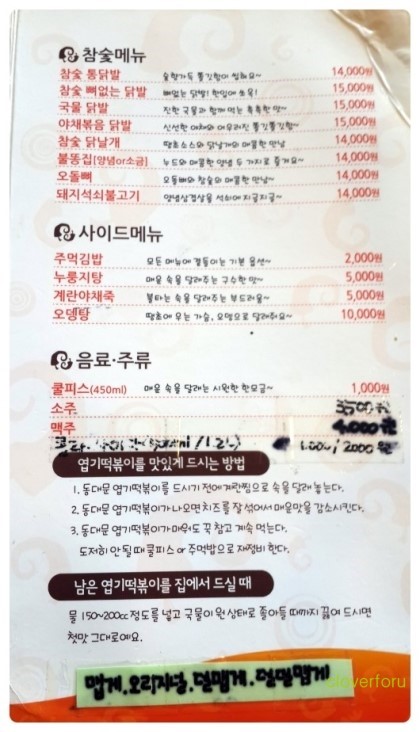 참숯메뉴
참숯 통닭발 숯향가득 쫄깃함이 씹혀요~ 14,000원
참숯 뼈없는 닭발 뼈없는 닭발! 한입에 쏘옥! 15,000원
국물 닭발 진한 국물과 함께 먹는 촉촉한 맛~ 15,000원
야채볶음 닭발 신선한 야채와 어우러진 쫄깃쫄깃함~ 15,000원
참숯 닭날개 땡초소스와 닭날개의 매콤한 만남 14,000원
불똥집[양념or소금] 누드와 매콤한 양념 두 가지로 즐겨요~ 14,000원
오돌뼈 오돌뼈와 참숯의 매콤한 만남~ 14,000원
돼지석쇠불고기 양념삼겹살을 석쇠에 지글지글~ 14,000원
사이드메뉴
주먹김밥 모든 메뉴에 곁들이는 기본 옵션~ 2,000원
누룽지탕 매운 속을 달래주는 구수한 맛~ 5,000원
계란야채죽 불타는 속을 달래주는 부드러움~ 5,000원
오뎅탕 땡초에 우는 가슴, 오뎅으로 달래줘요~ 10,000원
음료·주류
쿨피스(450ml) 매운 속을 달래는 시원한 한모금~ 1,000원
소주 3500원
맥주 4,000원
1,000/2000원
엽기떡볶이를 맛있게 드시는 방법
1. 동대문 엽기떡볶이를 드시기 전에 계란찜으로 속을 달래 놓는다.
2. 동대문 엽기떡볶이가 나오면 치즈를 잘 섞어서 매운맛을 감소시킨다.
3. 동대문 엽기떡볶이가 매워도 꾹 참고 계속 먹는다.
도저히 안 될 때 쿨피스 or 주먹밥으로 재정비 한다.
남은 엽기떡볶이를 집에서 드실 때
물 150~200cc 정도를 넣고 국물이 원상태로 졸아들 때까지 끓여 드시면
첫맛 그대로예요.
맵게.오리지널.덜맵게.덜덜맵게
cleverforu